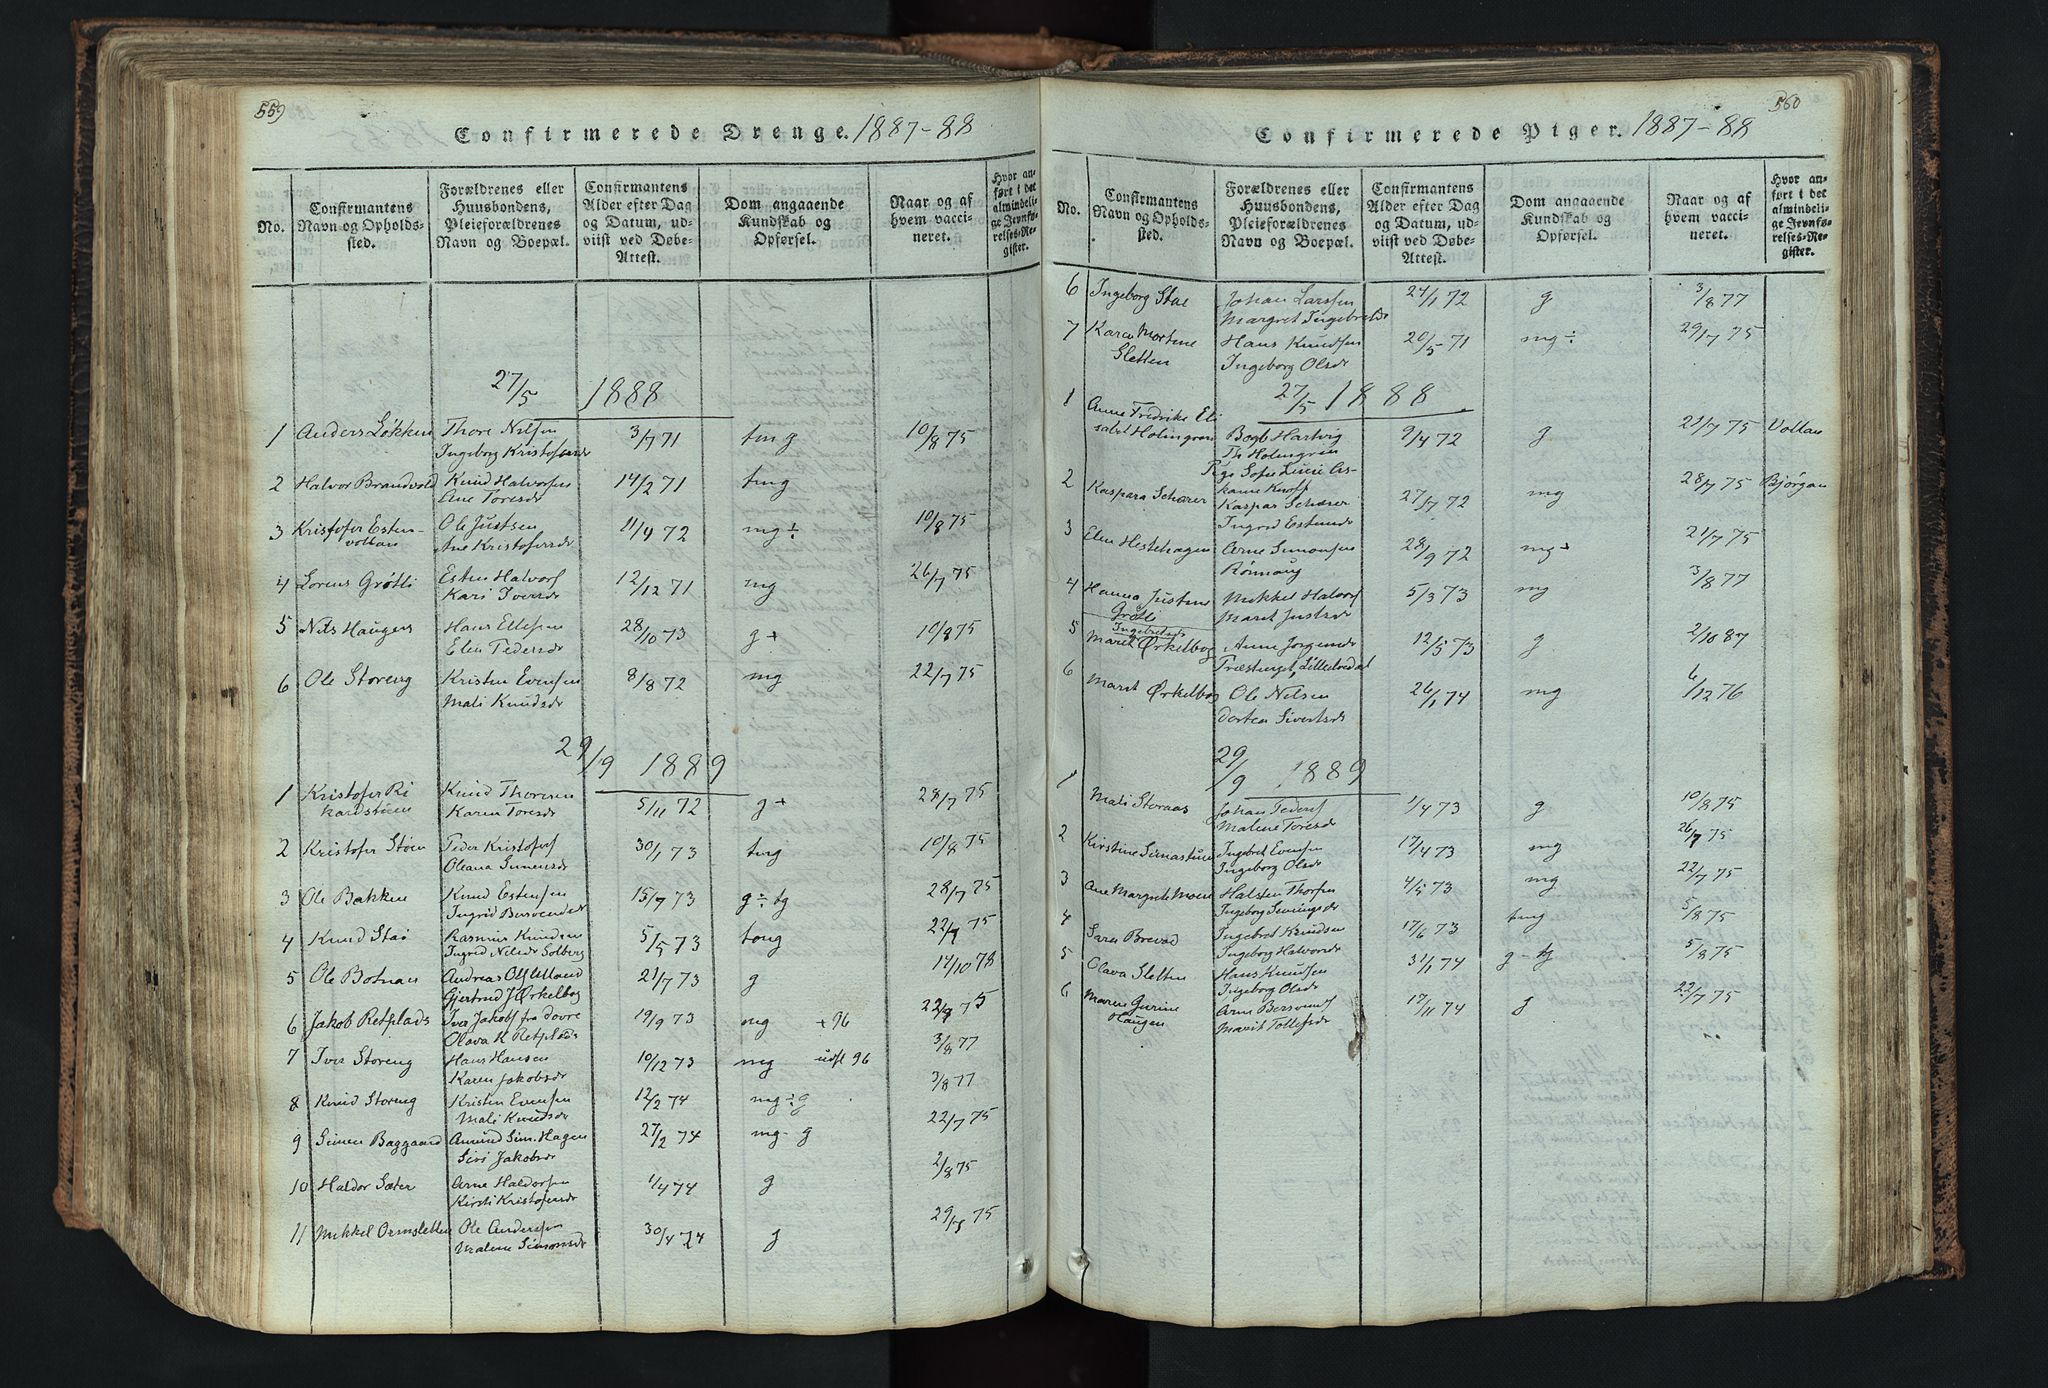 559
Confirmerede Drenge. 1887-88
No.
Confirmantens Navn og Opholdssted.
Forældrenes eller Huusbondens, Pleieforældrenes Navn og Boepæl.
Confirmantens Alder efter Dag og Datum, udviist ved Døbe-Attest.
Dom angaaende Kundskab og Opførsel.
Naar og af hvem vaccineret.
Hvor anført i det almindelige Jevnførelses-Register.
27/5 1888
1 Anders Løkken Thore Nilsen 3/7 71 tmg 10/8 75
Ingeborg Kristofersdr
2 Halvor Brandvold Knud Halvorsen 14/2 71 tmg
Ane Toresdr
3 Kristofer Esten- Ole Justsen 11/4 72 mg÷ 10/8 75
vollan Ane Kristofersdr
4 Lorens Grøtli Esten Halvors 12/12 71 mg 26/7 75
Kari Iversdr
5 Nils Haugen Hans Ellefsen 28/10 73 g+ 10/8 75
Elen Pedersdr
6 Ole Storeng Kristen Evensen 8/8 72 mg 22/7 75
Mali Knudsdr
29/9 1889
1 Kristofer Ri Knud Thoresen 5/11 72 g+ 28/7 75
kardstuen Karen Toresdr
2 Kristofer Støen Peder Kristofers 30/1 73 tmg 10/8 75
Oleana Simensdr
3 Ole Bakken Knud Estensen 15/7 73 g÷tg 28/7 75
Ingrid Bersvendsdr
4 Knud Stai Rasmus Knudsen 5/5 73 tmg 22/7 75
Ingrid Nilsdr Solberg
5 Ole Botnan Andreas O 21/7 73 g 14/10 78
Gjertrud J Ørkelbog
6 Jakob Retplads Iver Jakobs fra Dovre 19/9 73 mg +96 22/9 75
Olava K Retplads
7 Iver Storeng Hans Hansen 10/12 73 mg udfl 96 3/8 77
Karen Jakobsdr
8 Knud Storeng Kristen Evensen 12/2 74 mg÷g 3/8 77
Mali Knudsdr
9 Simen Baggaard Amund Sim. Hagen 27/2 74 mg-g 22/7 75
Siri Jakobsdr
10 Haldor Sæter Arne Haldorsen 1/4 74 g 2/8 75
Kirsti Kristofersdr
11 Mikkel Ormsletten Ole Anderssen 30/4 74 g 29/7 75
Malene Simonsdr
560
Confirmerede Piger. 1887-88
No.
Confirmantens Navn og Opholdssted.
Forældrenes eller Huusbondens, Pleieforældrenes Navn og Boepæl.
Confirmantens Alder efter Dag og Datum, udviist ved Døbe-Attest.
Dom angaaende Kundskab og Opførsel.
Naar og af hvem vaccineret.
Hvor anført i det almindelige Jevnførelses-Register.
6 Ingeborg Stai Johan Larssen 24/1 72 g 3/8 77
Margret Ingebretsdr
7 Karen Mortine Hans Knudsen 20/5 71 mg÷ 29/7 75
Sletten Ingeborg Olsdr
27/5 1888.
1 Anne Fredrike Eli
sabet Holmgren Bogb Hartvig 9/4 72 g 21/7 75 Vollan
Th Holmgren
Pige Sofie
2 Kaspara Schærer Kaspar Schærer 27/7 72 mg 28/7 75 Bjørgan
Ingrid Estensdr
3 Elen Hestehagen Arne Simonsen 28/9 72 mg+ 21/7 75
Rønnaug
4 Hanna Justine Mikkel Halvors 5/3 73 mg 3/8 77
Grøtli Maret Justsdr
5 Ingebretsdr
Maret Ørkelbog Anne Jørgensdr 12/5 73 g 2/10 87
Træthaget, Lilleelvedal
6 Maret Ørkelbog Ole Nilsen 26/1 74 mg 6/12 76
Dortea Sivertsdr
29/9 1889
1 Mali Storaas Johan Peders 1/4 73 g 10/8 75
Malene Toresdr
2 Kirstine Simastuen Ingebret Evensen 17/4 73 mg 26/7 75
Ingeborg Olsdr
3 Ane Margrete Moen Halsten Thorsen 4/5 73 mg 22/7 75
Ingeborg
4 Sara Brevad Ingebret Knudsen 17/6 73 tmg 5/8 75
Ingeborg Halvorsdr
5 Olava Sletten Hans Knudsen 31/1 74 g-tg 5/8 75
Ingeborg Olsdr
6 Maren Gurine Arne Bersvends 17/11 74 g 22/7 75
Haugen Marit Tollefsdr